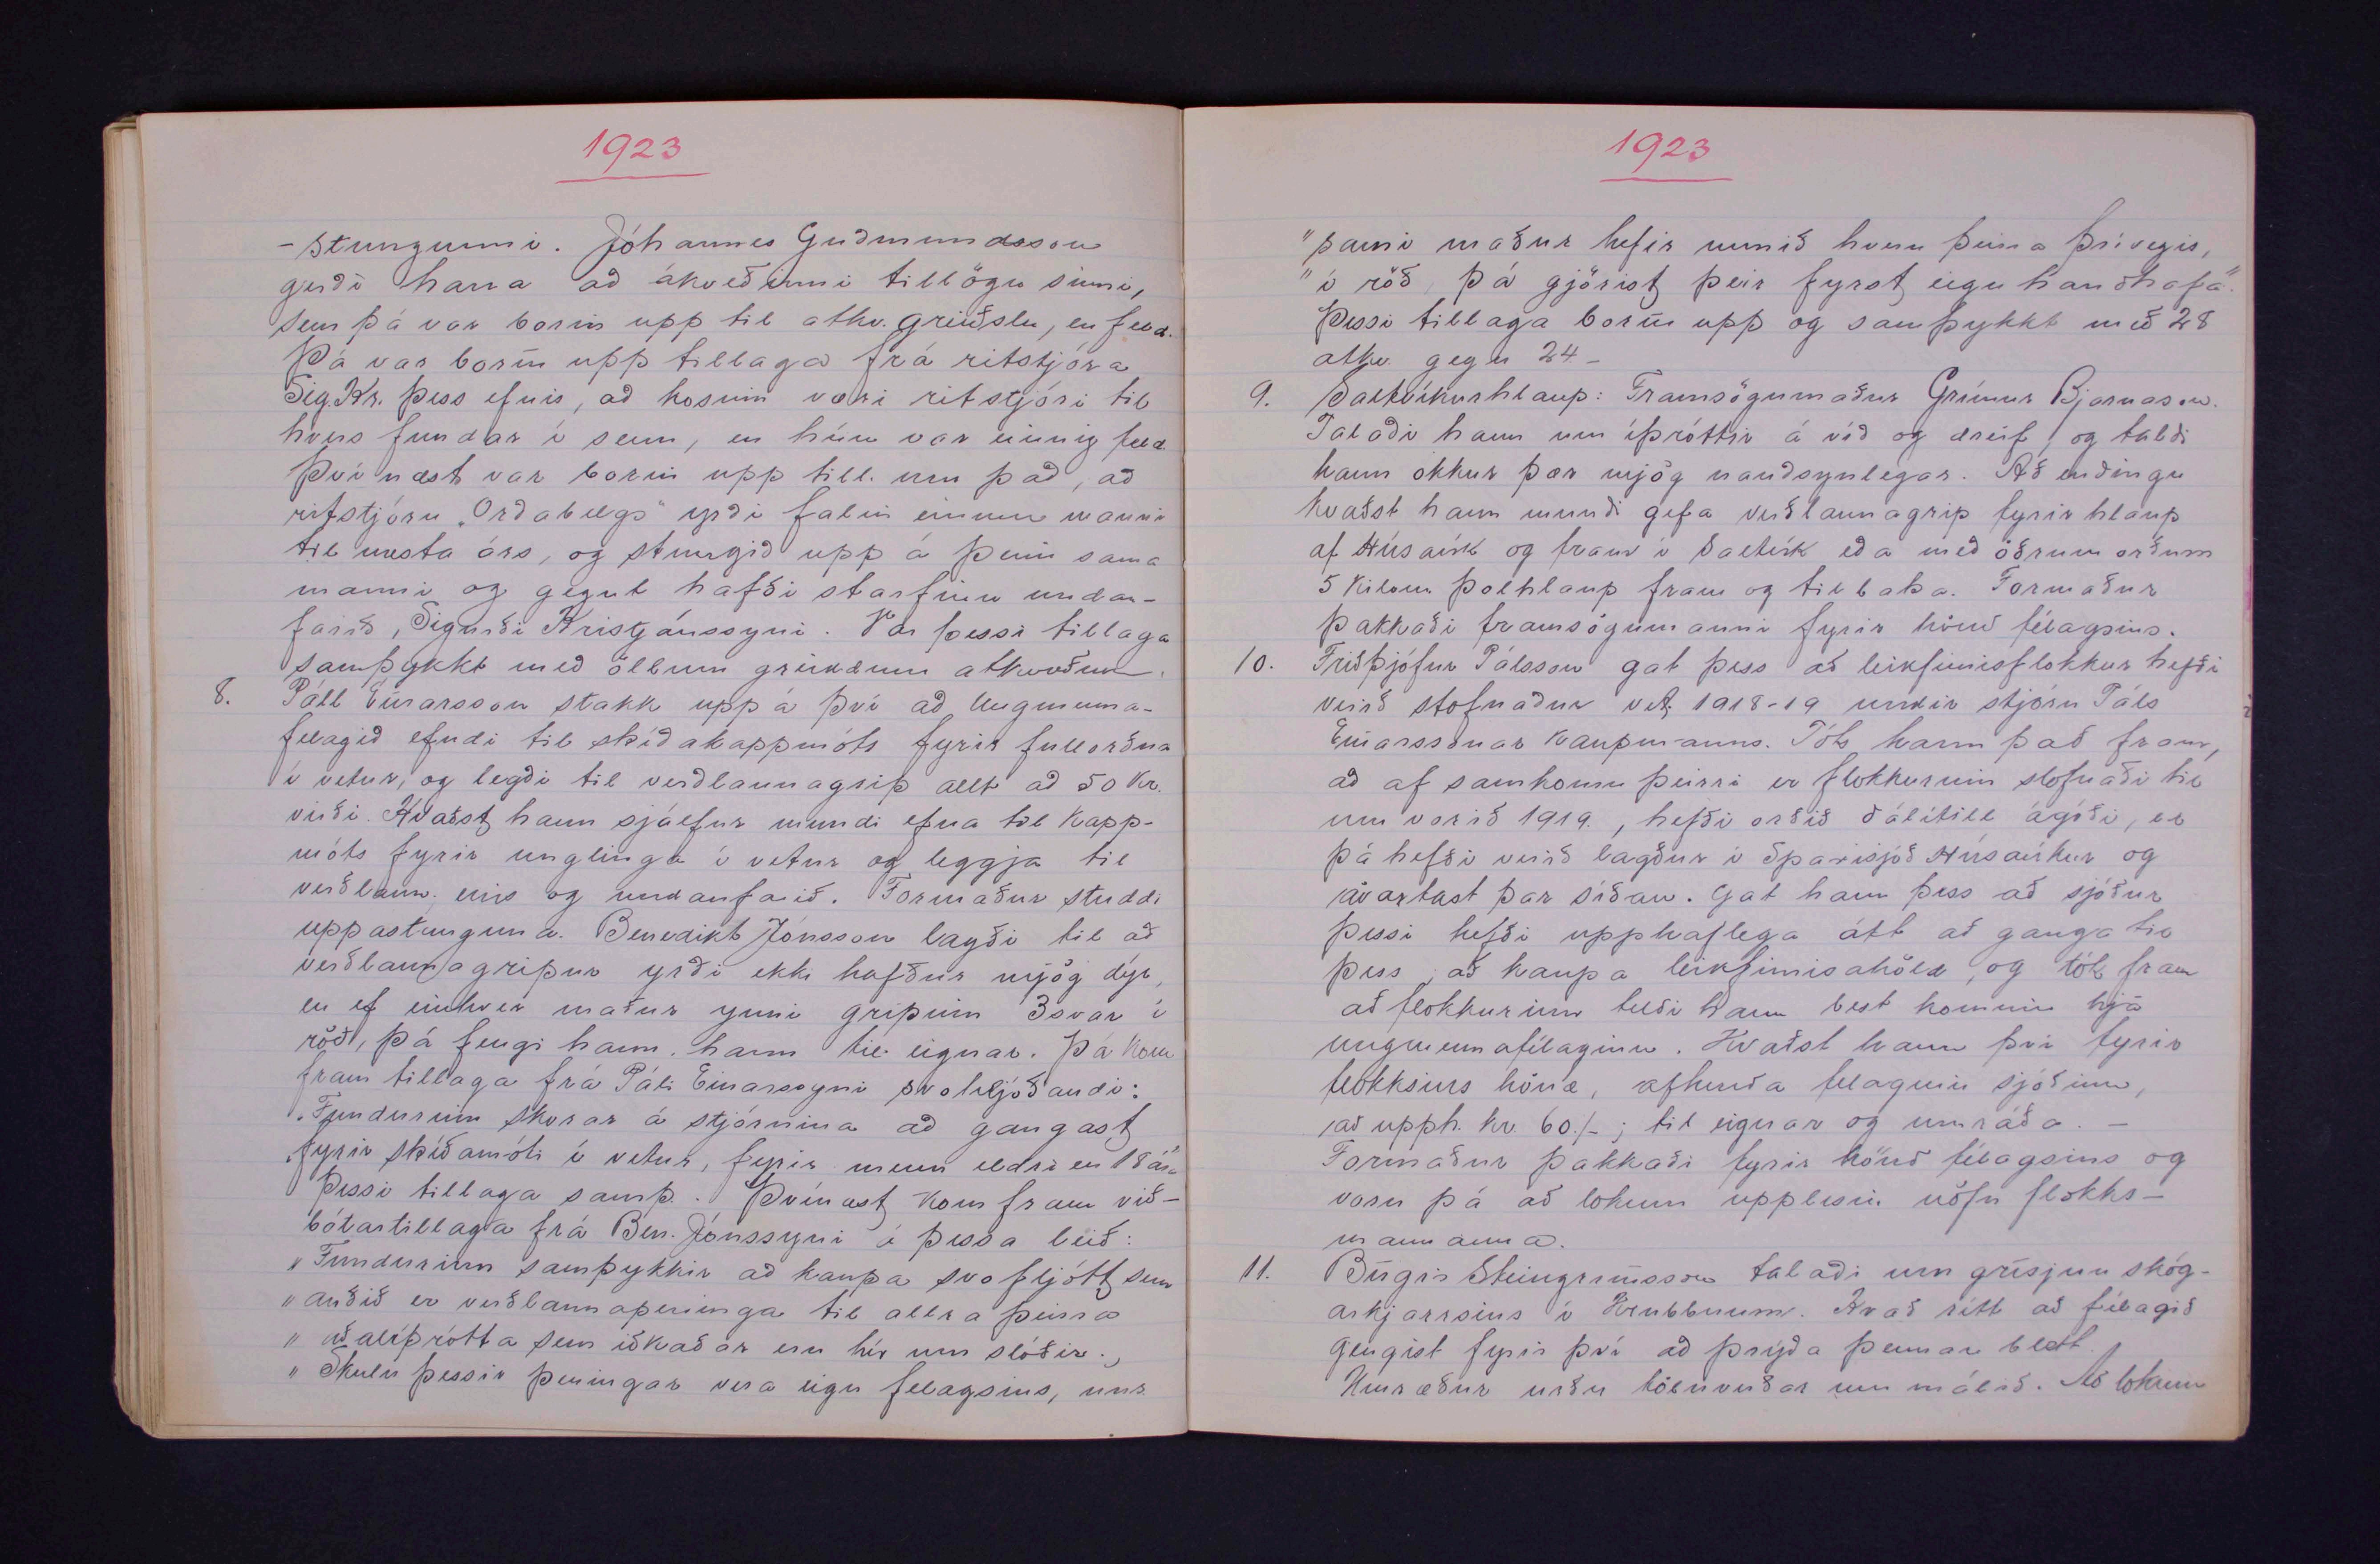 1923
- stungunni. Jóhannes Guðmundsson
gerði hana að ákveðinni tillögu sinni,
sem þá var borin upp til atkv. greiðslu, en feld.
Þá var borin upp tillaga frá ritstjóra
Sig. Kr. þess efnis, að kosinn væri ritstjóri til
hvers fundar í senn, en hún var einnig feld.
Því næst var borin upp till. um það, að
ritstjórn „Orðabelgs" yrði falin einum manni
til næsta árs, og stungið upp á þeim sama
manni og gegnt hafði starfinu undan-
farið, Sigurði Kristjánssyni. Var þessi tillaga
samþykkt með öllum greiddum atkvæðum.
8. Páll Einarsson stakk uppá því að Ungmenna-
félagið efndi til skíðakappmóts fyrir fullorðna
í vetur, og legði til verðlaunagrip allt að 50 kr.
virði. Kvaðst hann sjálfur mundi efna til kapp-
móts fyrir unglinga í vetur og leggja til
verðlaun, eins og undanfarið. Formaður studdi
uppástunguna. Benedikt Jónsson lagði til að
verðlaunagripur yrði ekki hafður mjög dýr,
en ef einhver maður ynni gripinn 3svar í
röð, þá fengi hann, hann til eignar. Þá kom
fram tillaga frá Páli Einarssyni svohljóðandi:
„Fundurinn skorar á stjórnina að gangast
„fyrir skíðamóti í vetur, fyrir menn eldri en 18 ára"
Þessi tillaga samþ. Þvínæst kom fram við-
bótartillaga frá Ben. Jónssyni á þessa leið:
„Fundurinn samþykkir að kaupa svo fljótt sem
„auðið er verðlaunapeninga til allra þeirra
„aðalíþrótta sem iðkaðar eru hér um slóðir.
„Skulu þessir peningar vera eign félagsins, uns
1923
„sami maður hefir unnið hvern þeirra þrívegis,
„í röð, þá gjörist þeir fyrst eign handhafa".
Þessi tillaga borin upp og samþykkt með 28
atkv. gegn 24 -
9. Saltvíkurhlaup: Framsögumaður Grímur Bjarnason.
Talaði hann um íþróttir á víð og dreif, og taldi
hann okkur þær mjög nauðsynlegar. Að endingu
kvaðst hann mundi gefa verðlaunagrip fyrir hlaup
af Húsavík og fram í Saltvík eða með öðrum orðum
5 kílom. þolhlaup fram og til baka. Formaður
þakkaði framsögumanni fyrir hönd félagsins.
10. Friðþjófur Pálsson gat þess að leikfimisflokkur hefði
verið stofnaður vet. 1918-19 undir stjórn Páls
Einarssonar kaupmanns. Tók hann það fram,
að af samkomu þeirri er flokkurinn stofnaði til
um vorið 1919., hefði orðið dálítill ágóði, er
þá hefði verið lagður í Sparisjóð Húsavíkur og
ávaxtast þar síðan. Gat hann þess að sjóður
þessi hefði upphaflega átt að ganga til
þess að kaupa leikfimisáhöld, og tók fram
að flokkurinn teldi hann best kominn hjá
ungmennafélaginu. Kvaðst hann því fyrir
flokksins hönd, afhenda félaginu sjóðinn,
að upph. kr. 60./- ; til eignar og umráða. -
Formaður þakkaði fyrir hönd félagsins og
voru þá að lokum upplesin nöfn flokks-
mannanna.
11. Birgir Steingrímsson talaði um grisjun skóg-
arkjarrsins í Krubbnum. Kvað rétt að félagið
gengist fyrir því að prýða þennan blett.
Umræður urðu töluverðar um málið. Að lokum